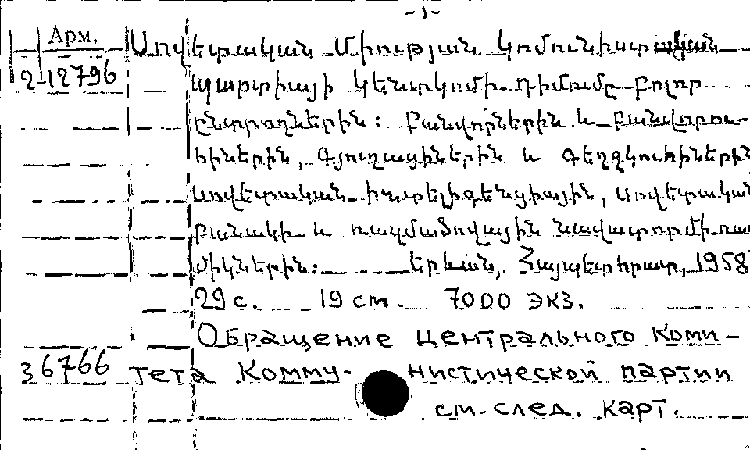 -1-
Арм.
Սովետական Միության Կոմունիստական
2-12796 պարտիայի Կենտկոմի Դիմումը բոլոր
ընտրողներին: Բանվորներին և բանվորու-
հիներին, Գյուղացիներին և Գեղջկուհիներին
սովետական ինտելիգենցիային, սովետական
բանակի և ռազմածովային նավատորմի ռազ
միկներին: Երևան, Հայպետհրատ, 1958
29 с. 19 см. 7000 экз.
Обращение Центрального Коми-
36766 тета Комму- нистической партии
см. след. карт.